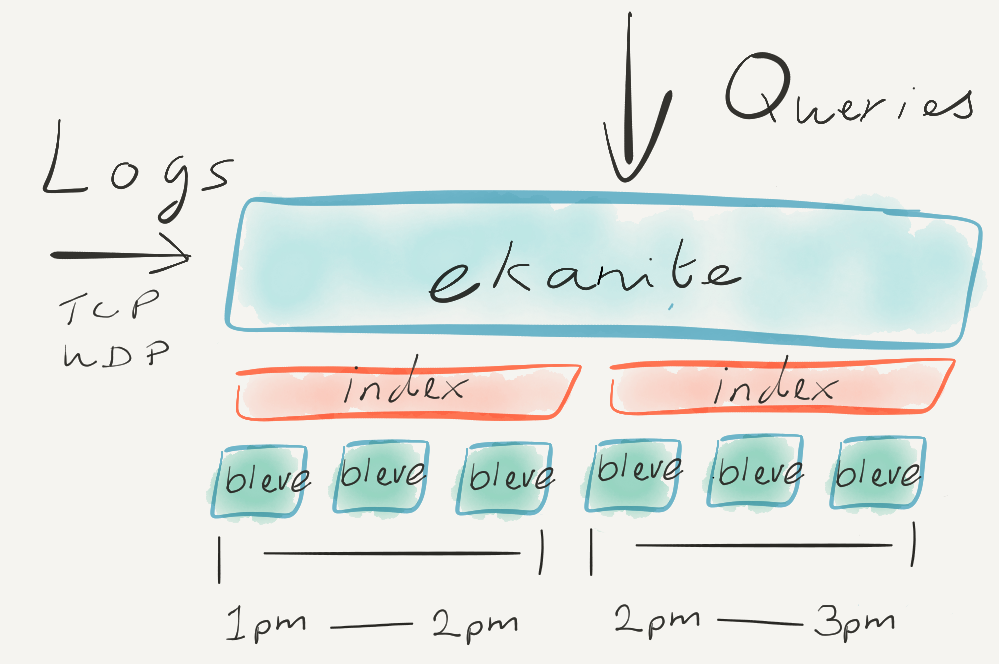 Queries
Logs
TCP
UDP
ekanite
index index
bleve bleve bleve bleve bleve bleve
1pm — 2pm 2pm — 3pm